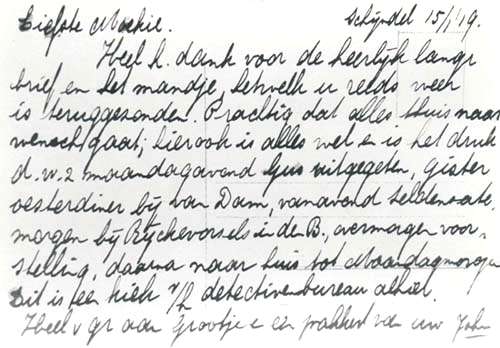 Liefste Moekie. Schijndel 15/1 '19.
Heel h. dank voor de heerlijk lange
brief en het mandje, hetwelk u reeds weer
is teruggezonden. Prachtig dat alles thuis naar
wensch gaat; hier ook is alles wel en is het druk
d.w.z maandagavond Gijs uitgegeten, gister
oesterdiner bij van Dam, vanavond
morgen bij Rijckevorsels in den B., overmorgen voor-
stelling, daarna naar huis tot Maandagmorgen
Dit is een kiek v/h detectivenbureau alhier.
Heel v gr aan Grootje e een pakkert van uw John